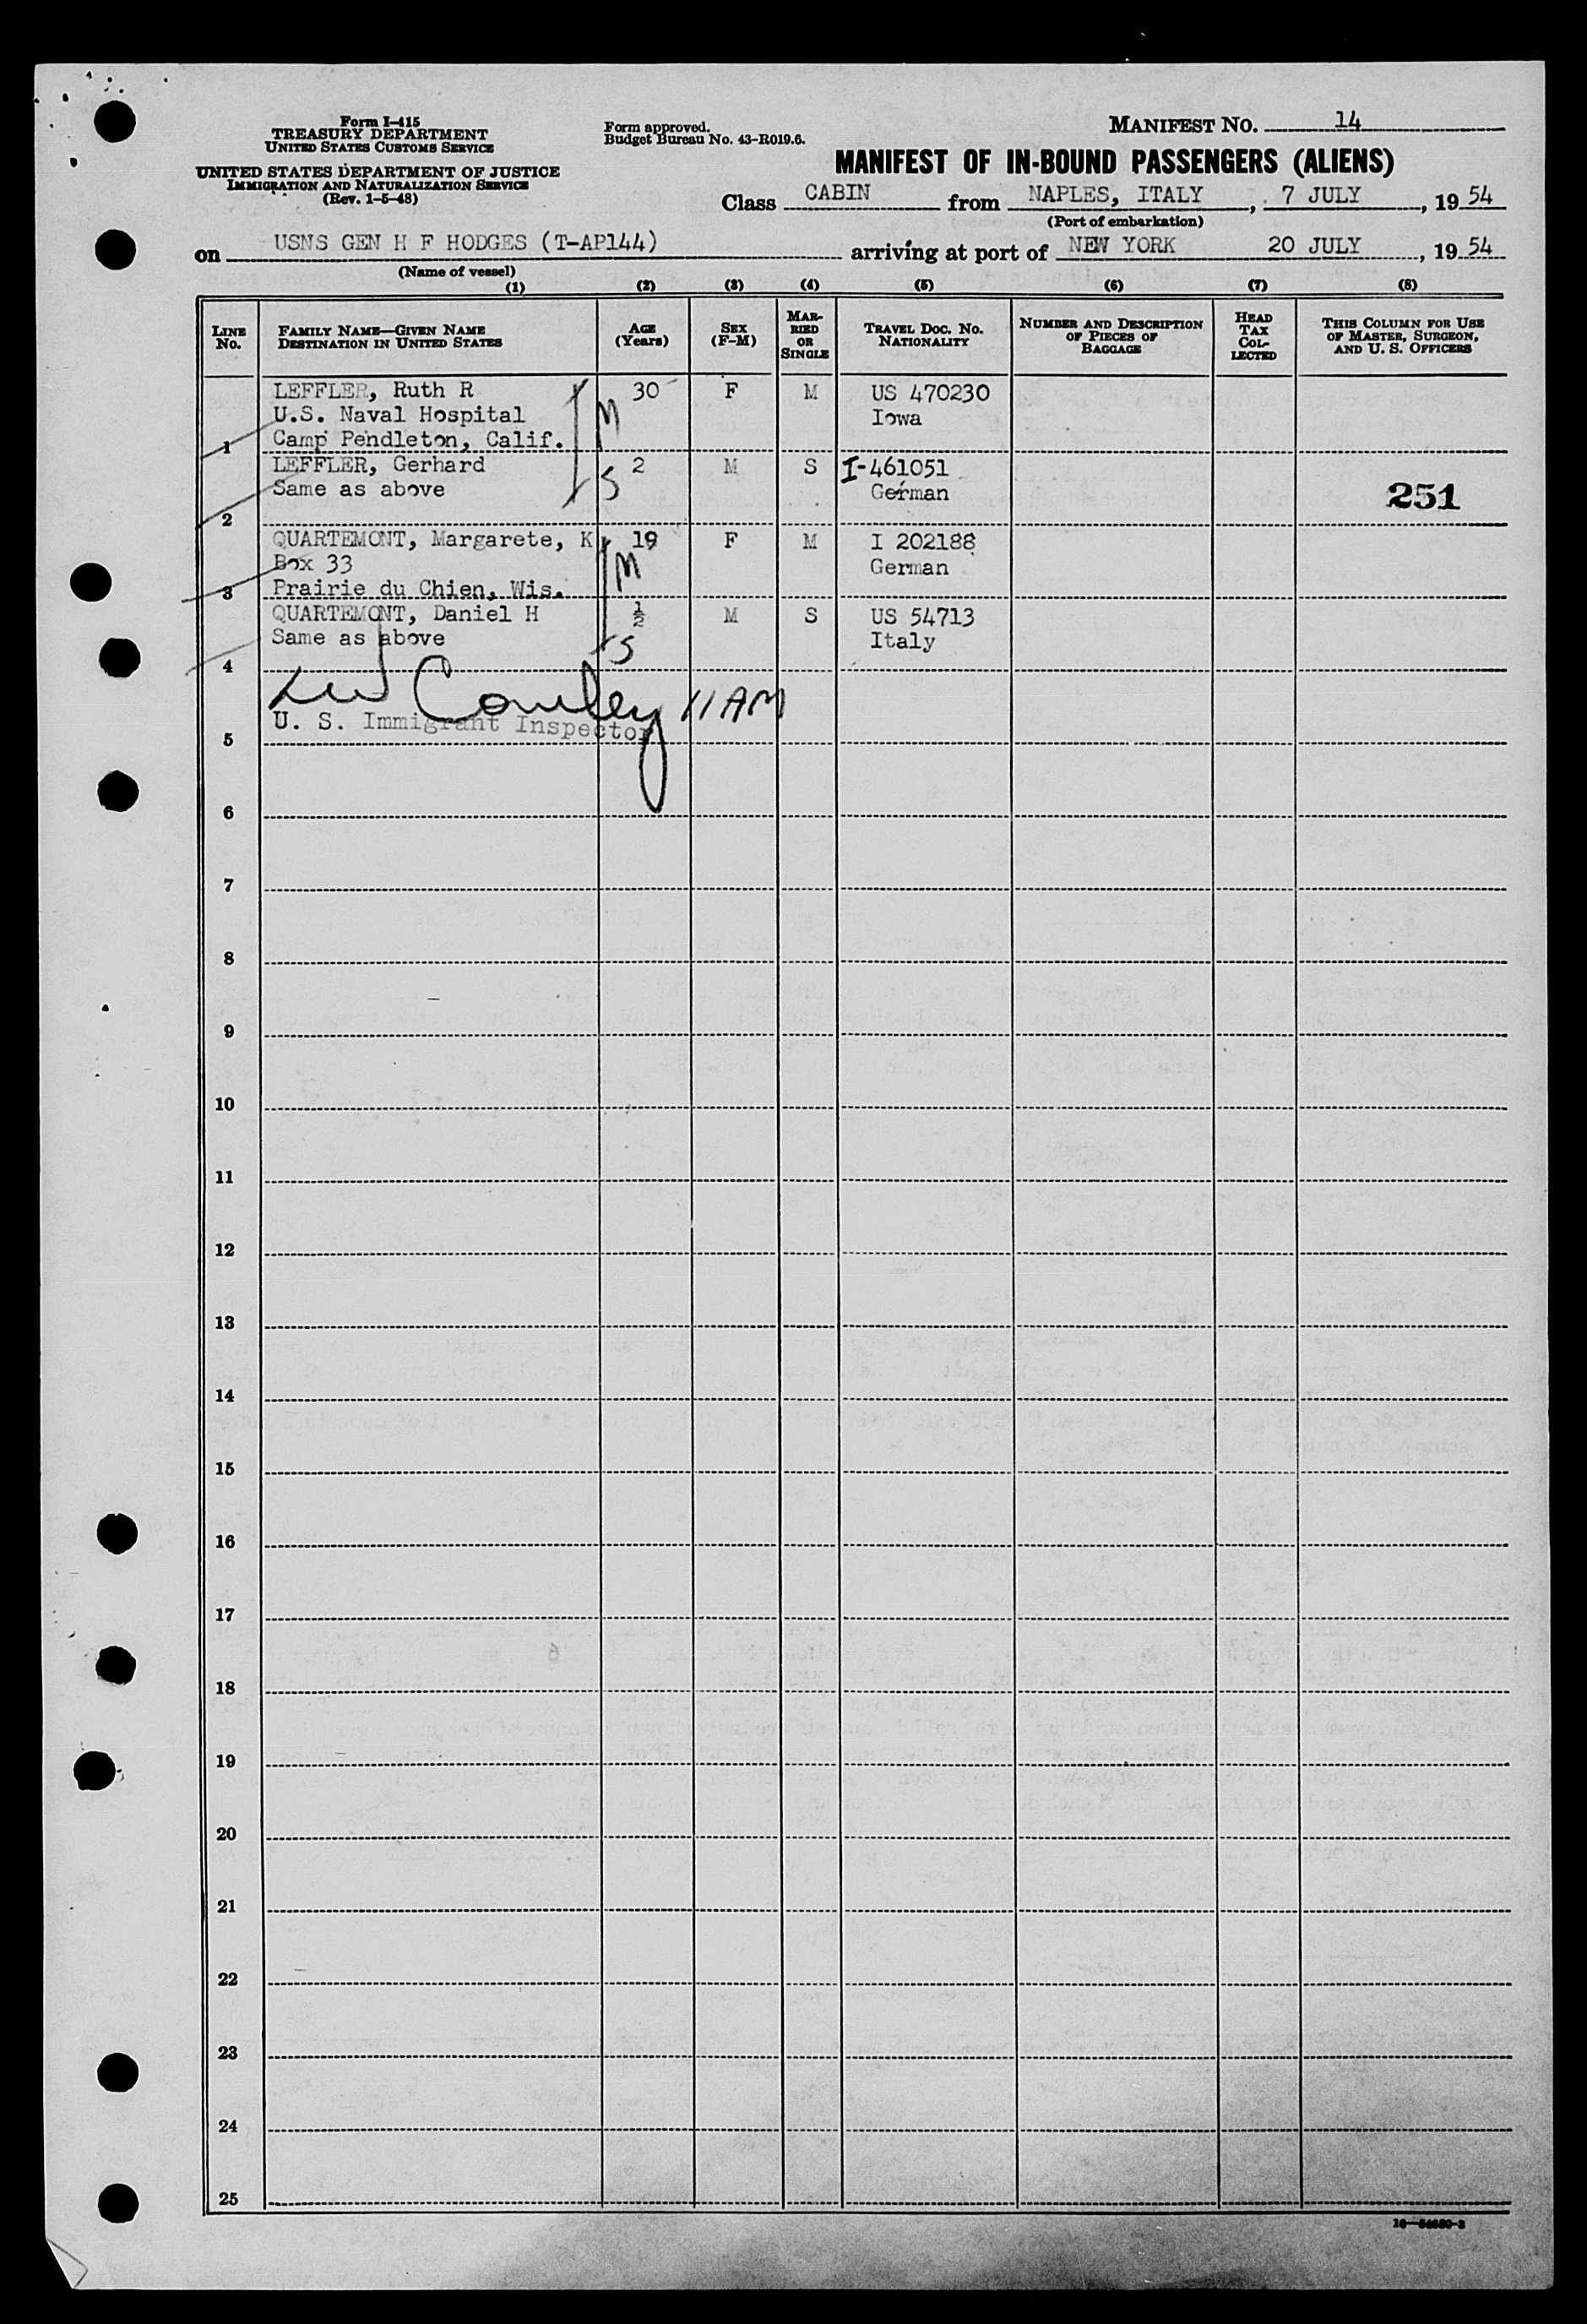 Form I-415
TREASURY DEPARTMENT
UNITED STATES CUSTOMS SERVICE
UNITED STATES DEPARTMENT OF JUSTICE
IMMIGRATION AND NATURALIZATION SERVICE
(Rev. 1-5-48)
Form approved.
Budget Bureau No. 43-R019.6.
MANIFEST NO. 14
MANIFEST OF IN-BOUND PASSENGERS (ALIENS)
Class CABIN from NAPLES, ITALY, 7 JULY, 19 54
(Port of embarkation)
on USNS GEN H F HODGES (T-AP144) arriving at port of NEW YORK 20 JULY, 19 54
(Name of vessel)
(1) (2) (3) (4) (5) (6) (7) (8)
LINE NO.
FAMILY NAME—GIVEN NAME
DESTINATION IN UNITED STATES
AGE
(Years)
SEX
(F-M)
MAR-
RIED
OR
SINGLE
TRAVEL DOC. NO.
NATIONALITY
NUMBER AND DESCRIPTION
OF PIECES OF
BAGGAGE
HEAD
TAX
COL-
LECTED
THIS COLUMN FOR USE
OF MASTER, SURGEON,
AND U. S. OFFICERS
LEFFLER, Ruth R 30 F M US 470230
U.S. Naval Hospital M Iowa
1 Camp Pendleton, Calif.
LEFFLER, Gerhard 2 M S I-461051
Same as above S German 251
2
QUARTEMONT, Margarete, K 19 F M I 202188
Box 33 M German
3 Prairie du Chien, Wis.
QUARTEMONT, Daniel H ½ M S US 54713
Same as above S Italy
4
Cowley 11 AM
U. S. Immigrant Inspector
5
6
7
8
9
10
11
12
13
14
15
16
17
18
19
20
21
22
23
24
25